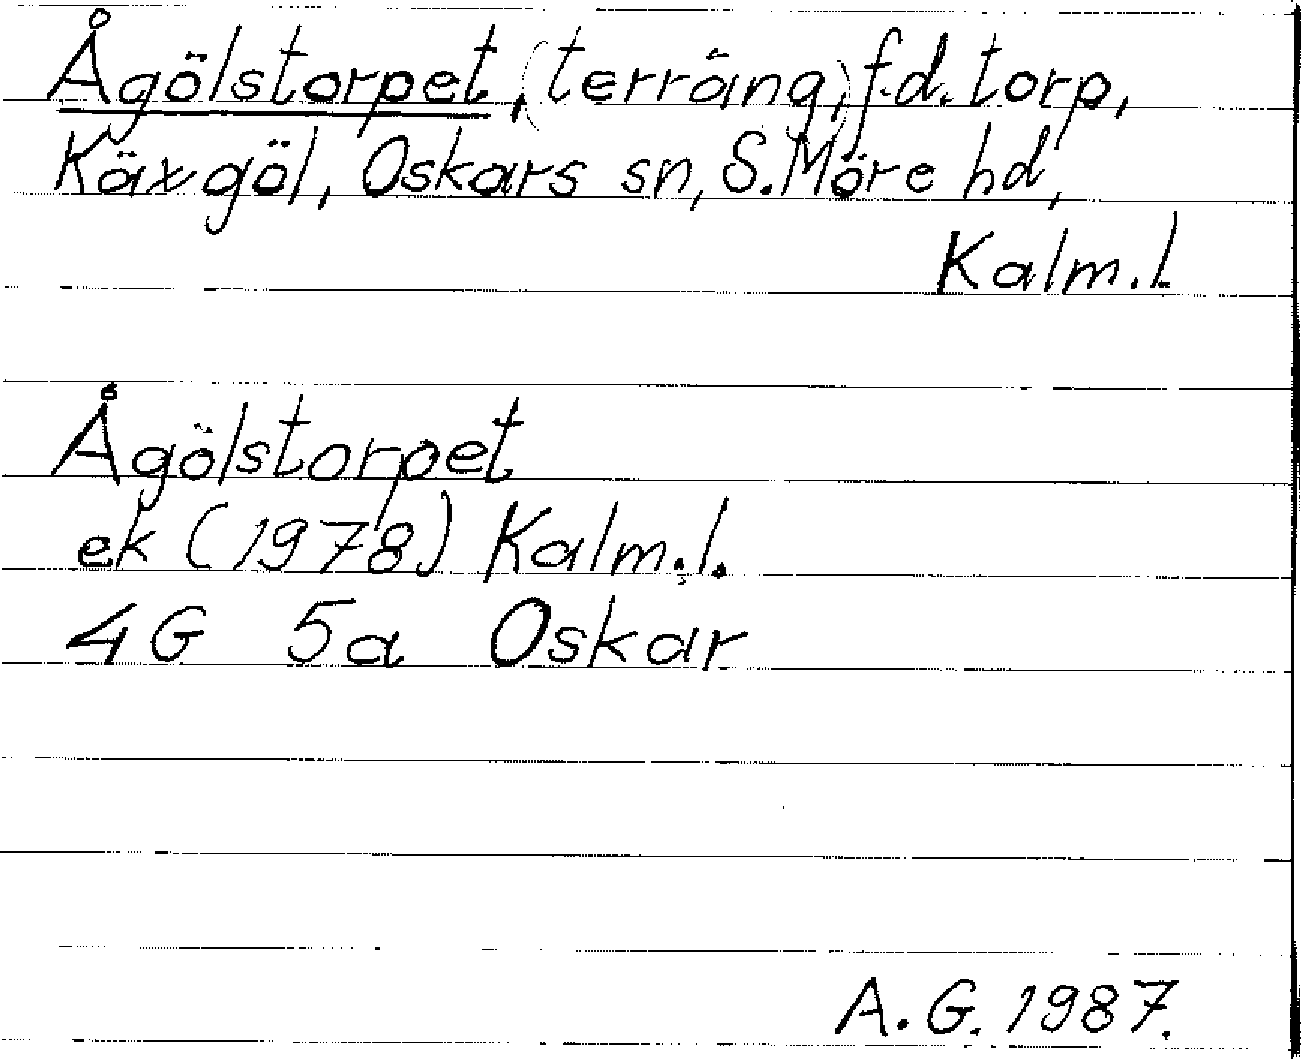 Ågölstorpet, (terräng,) f.d. torp,
Käxgöl, Oskars sn, S. Möre hd,
Kalm.l.
Ågölstorpet
ek (1978) Kalm.l.
4G 5a Oskar
A.G. 1987.